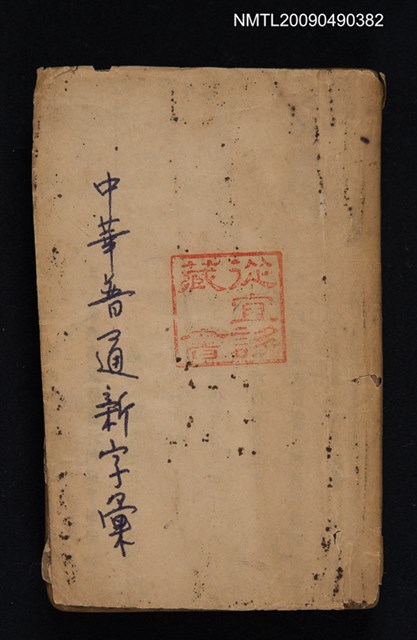 NMTL20090490382
從宜診
藏書
中華普通新字彙